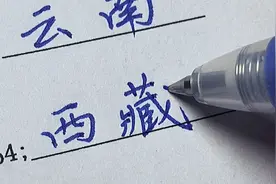 云南
54; 西藏